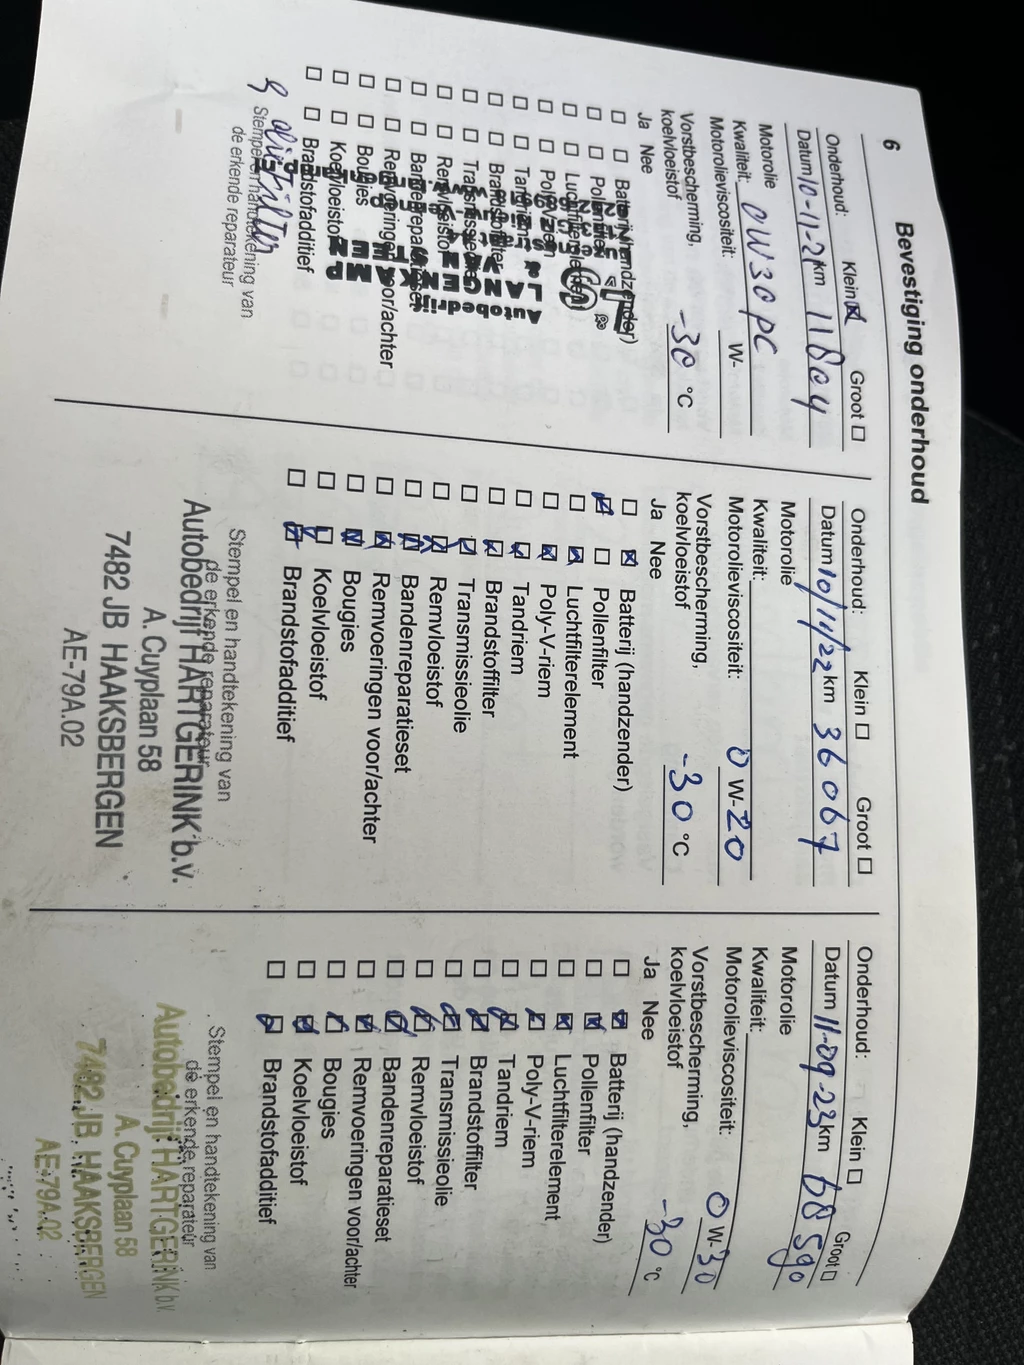 6
Bevestiging onderhoud
Onderhoud: Klein ☒ Groot ☐
Datum 10-11-21 km 11804
Motorolie
Kwaliteit: 0W30 PC
Motorolieviscositeit: W-
Vorstbescherming,
koelvloeistof -30 °C
Ja Nee
☐ ☐ Batterij (handzender)
☐ ☐ Pollenfilter
☐ ☐ Luchtfilterelement
☐ ☐ Poly-V-riem
☐ ☐ Tandriem
☐ ☐ Brandstoffilter
☐ ☐ Transmissieolie
☐ ☐ Remvloeistof
☐ ☐ Bandenreparatieset
☐ ☐ Remvoeringen voor/achter
☐ ☐ Bougies
☐ ☐ Koelvloeistof
☐ ☐ Brandstofadditief
Stempel en handtekening van
de erkende reparateur
Autobedrijf
LANGENKAMP
& VAN STEEN
Onderhoud: Klein ☐ Groot ☐
Datum 10/11/22 km 36067
Motorolie
Kwaliteit:
Motorolieviscositeit: 0 W-20
Vorstbescherming,
koelvloeistof -30 °C
Ja Nee
☐ ☒ Batterij (handzender)
☒ ☐ Pollenfilter
☐ ☒ Luchtfilterelement
☐ ☒ Poly-V-riem
☐ ☒ Tandriem
☐ ☒ Brandstoffilter
☐ ☒ Transmissieolie
☐ ☒ Remvloeistof
☐ ☒ Bandenreparatieset
☐ ☒ Remvoeringen voor/achter
☐ ☒ Bougies
☐ ☒ Koelvloeistof
☐ ☒ Brandstofadditief
Stempel en handtekening van
de erkende reparateur
Autobedrijf HARTGERINK b.v.
A. Cuyplaan 58
7482 JB HAAKSBERGEN
AE-79A.02
Onderhoud: Klein ☐ Groot ☐
Datum 11-09-23 km 68590
Motorolie
Kwaliteit:
Motorolieviscositeit: 0 W-30
Vorstbescherming,
koelvloeistof -30 °C
Ja Nee
☐ ☒ Batterij (handzender)
☐ ☒ Pollenfilter
☐ ☒ Luchtfilterelement
☐ ☒ Poly-V-riem
☐ ☒ Tandriem
☐ ☒ Brandstoffilter
☐ ☒ Transmissieolie
☐ ☒ Remvloeistof
☐ ☒ Bandenreparatieset
☐ ☒ Remvoeringen voor/achter
☐ ☒ Bougies
☐ ☒ Koelvloeistof
☐ ☒ Brandstofadditief
Stempel en handtekening van
de erkende reparateur
Autobedrijf HARTGERINK b.v.
A. Cuyplaan 58
7482 JB HAAKSBERGEN
AE-79A.02